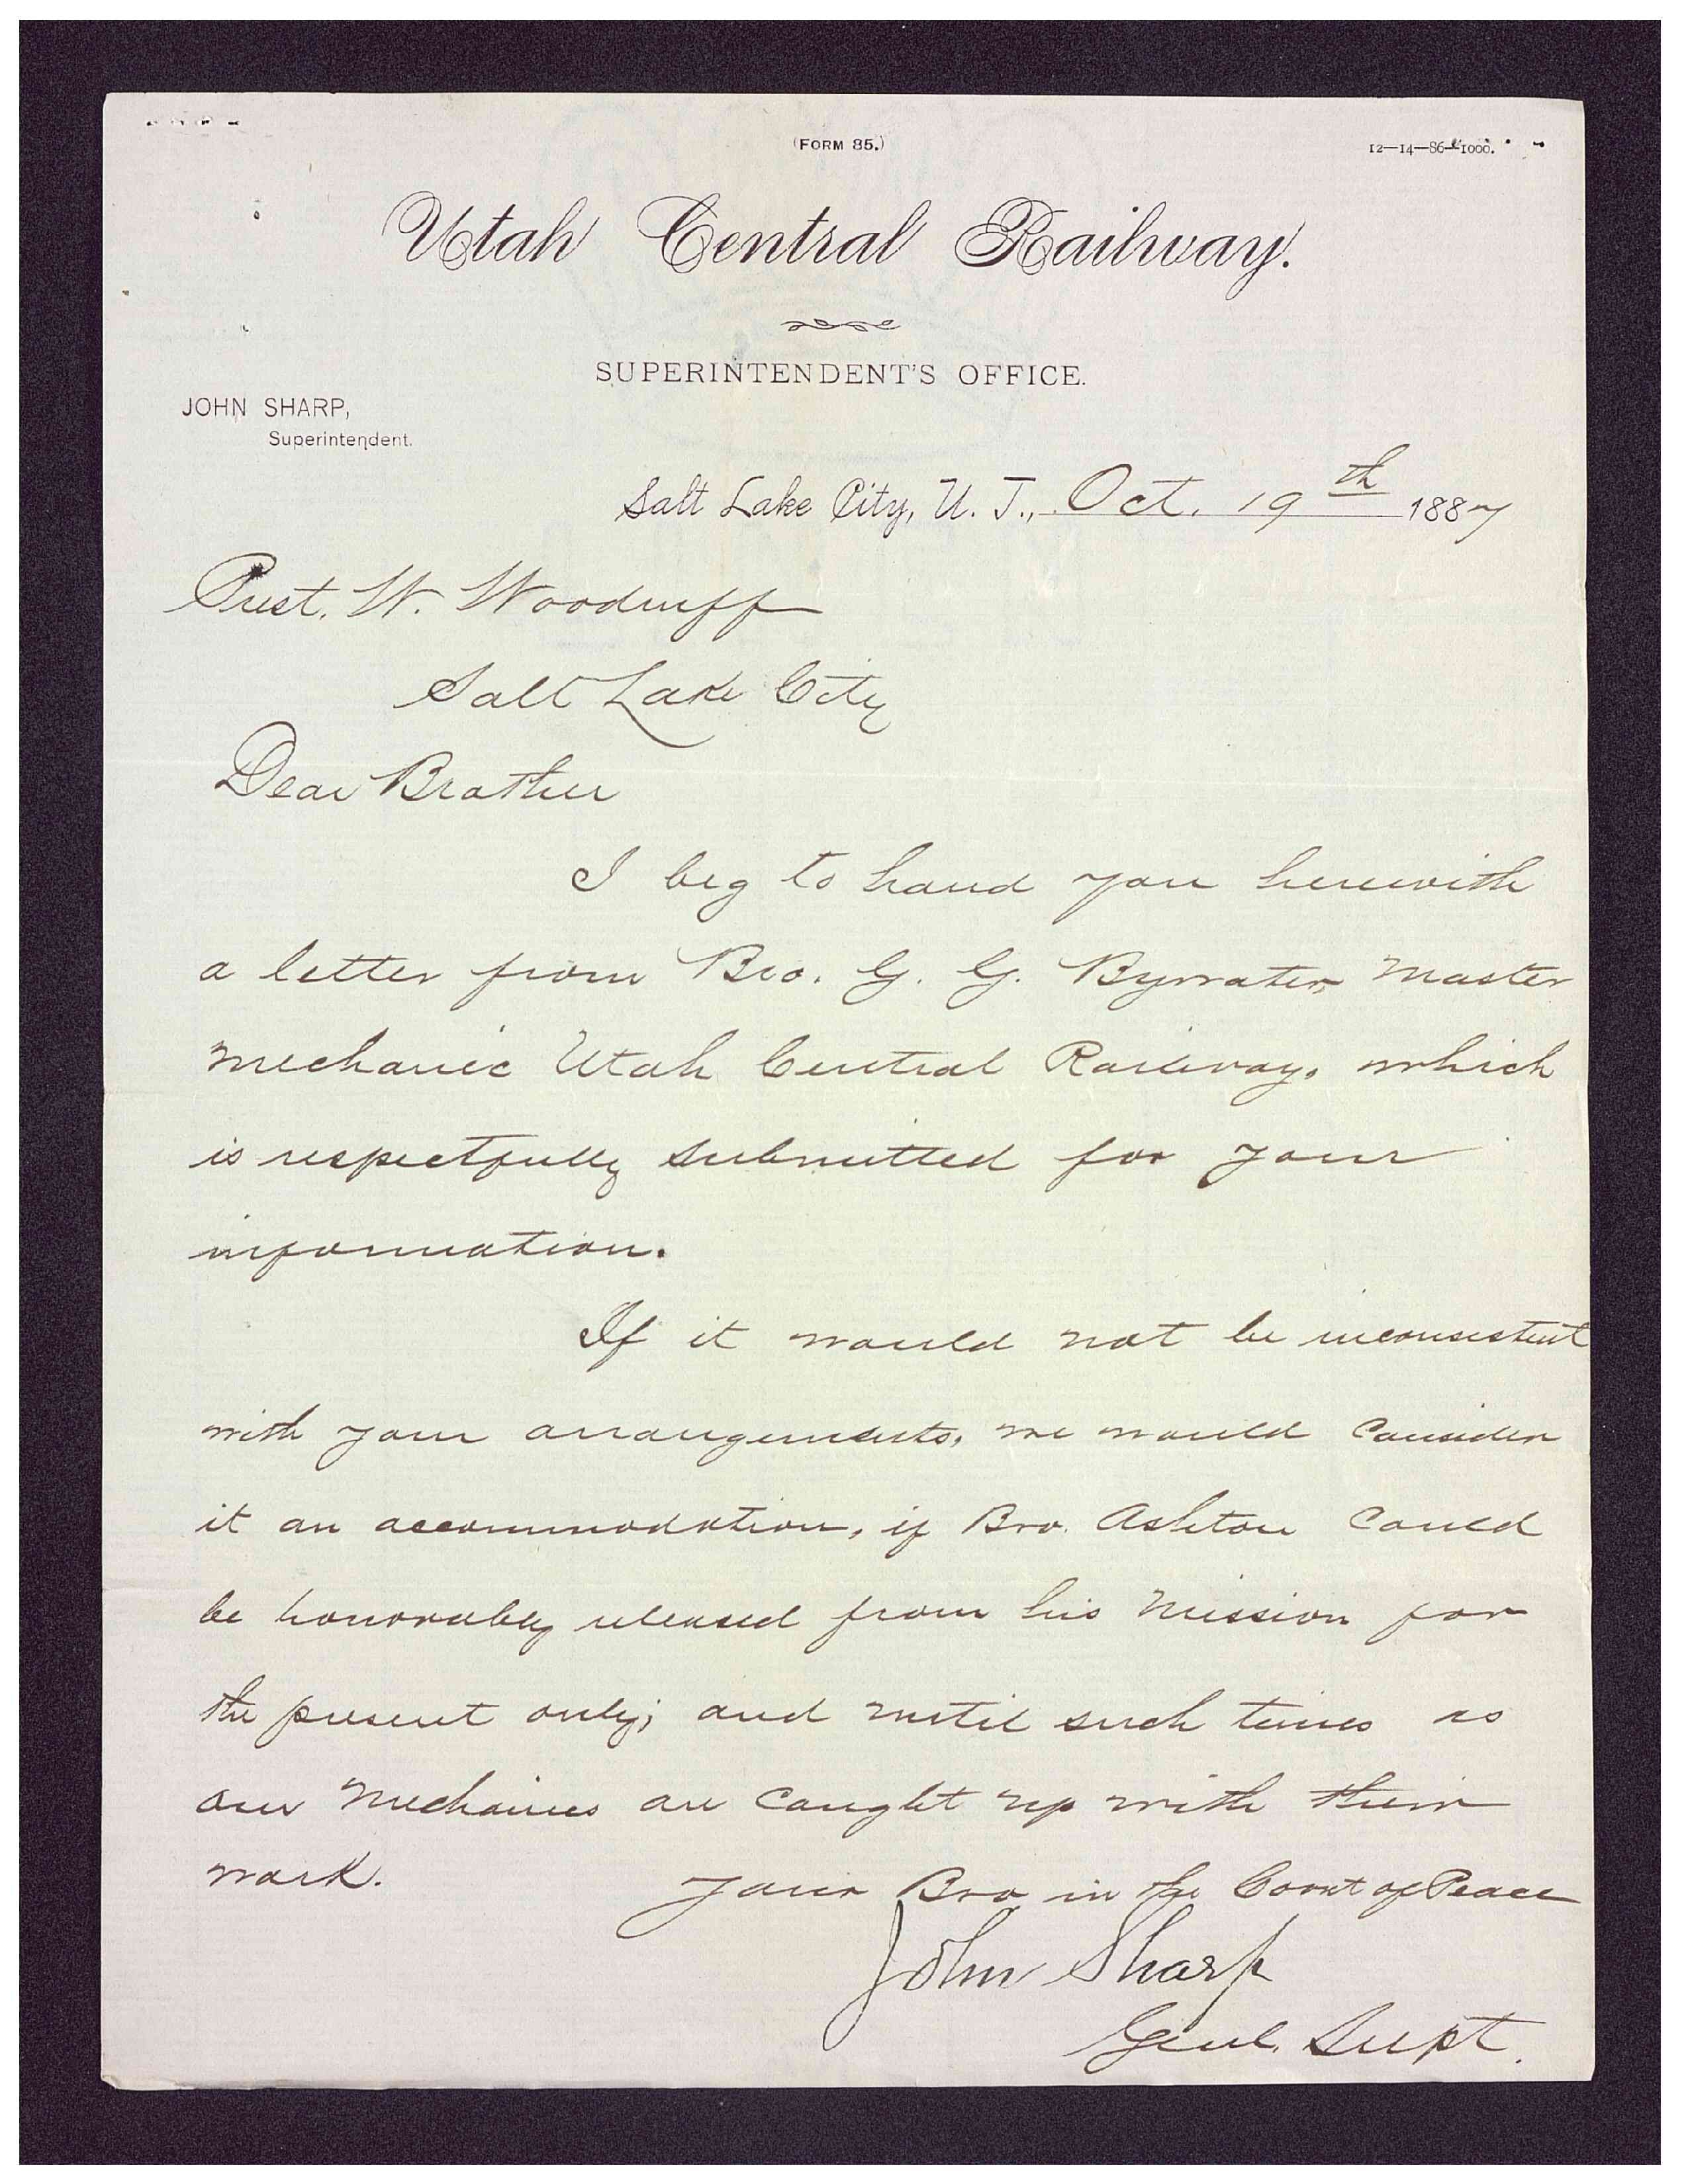 (FORM 85.)
12—14—86—1000.
Utah Central Railway.
SUPERINTENDENT'S OFFICE.
JOHN SHARP,
Superintendent.
Salt Lake City, U. T., Oct. 19th 1887
Prest. W. Woodruff
Salt Lake City
Dear Brother
I beg to hand you herewith
a letter from Bro. G. G. Bywater Master
Mechanic Utah Central Railway, which
is respectfully submitted for your
information.
If it would not be inconsistent
with your arrangements, we would consider
it an accommodation, if Bro. Ashton could
be honorably released from his mission for
the present only; and until such times as
our Mechanics are caught up with their
work.
Your Bro in the Covnt of Peace
John Sharp
Genl. Supt.